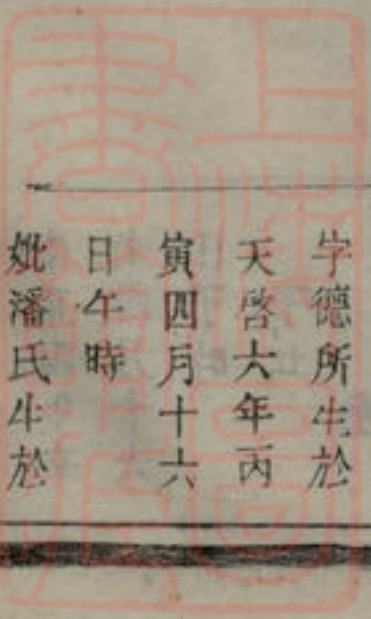 字德所生於
天啓六年丙
寅四月十六
日午時
妣潘氏生於